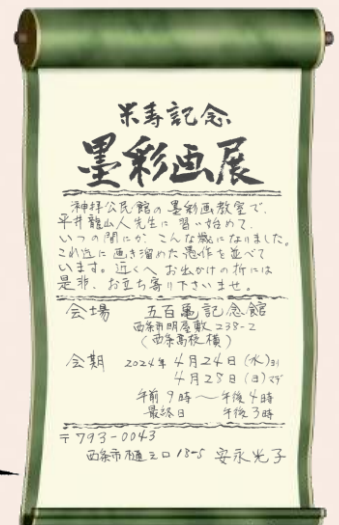 米寿記念
墨彩画展
神拝公民館の墨彩画教室で、
平井龍山人先生に習い始めて、
いつの間にか、こんな歳になりました。
これ迄に画き溜めた愚作を並べて
います。近くへお出かけの折には
是非、お立ち寄り下さいませ。
会場 五百亀記念館
西条市明屋敷238-2
(西条高校横)
会期 2024年4月24日(水)ヨリ
4月28日(日)マデ
午前9時〜午後4時
最終日 午後3時
〒793-0043
西条市樋之口18-5 安永光子